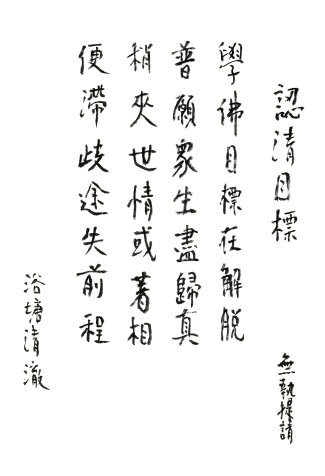 認清目標
無執提請
學佛目標在解脫
普願眾生盡歸真
稍夾世情或著相
便滯歧途失前程
浴塘清澈